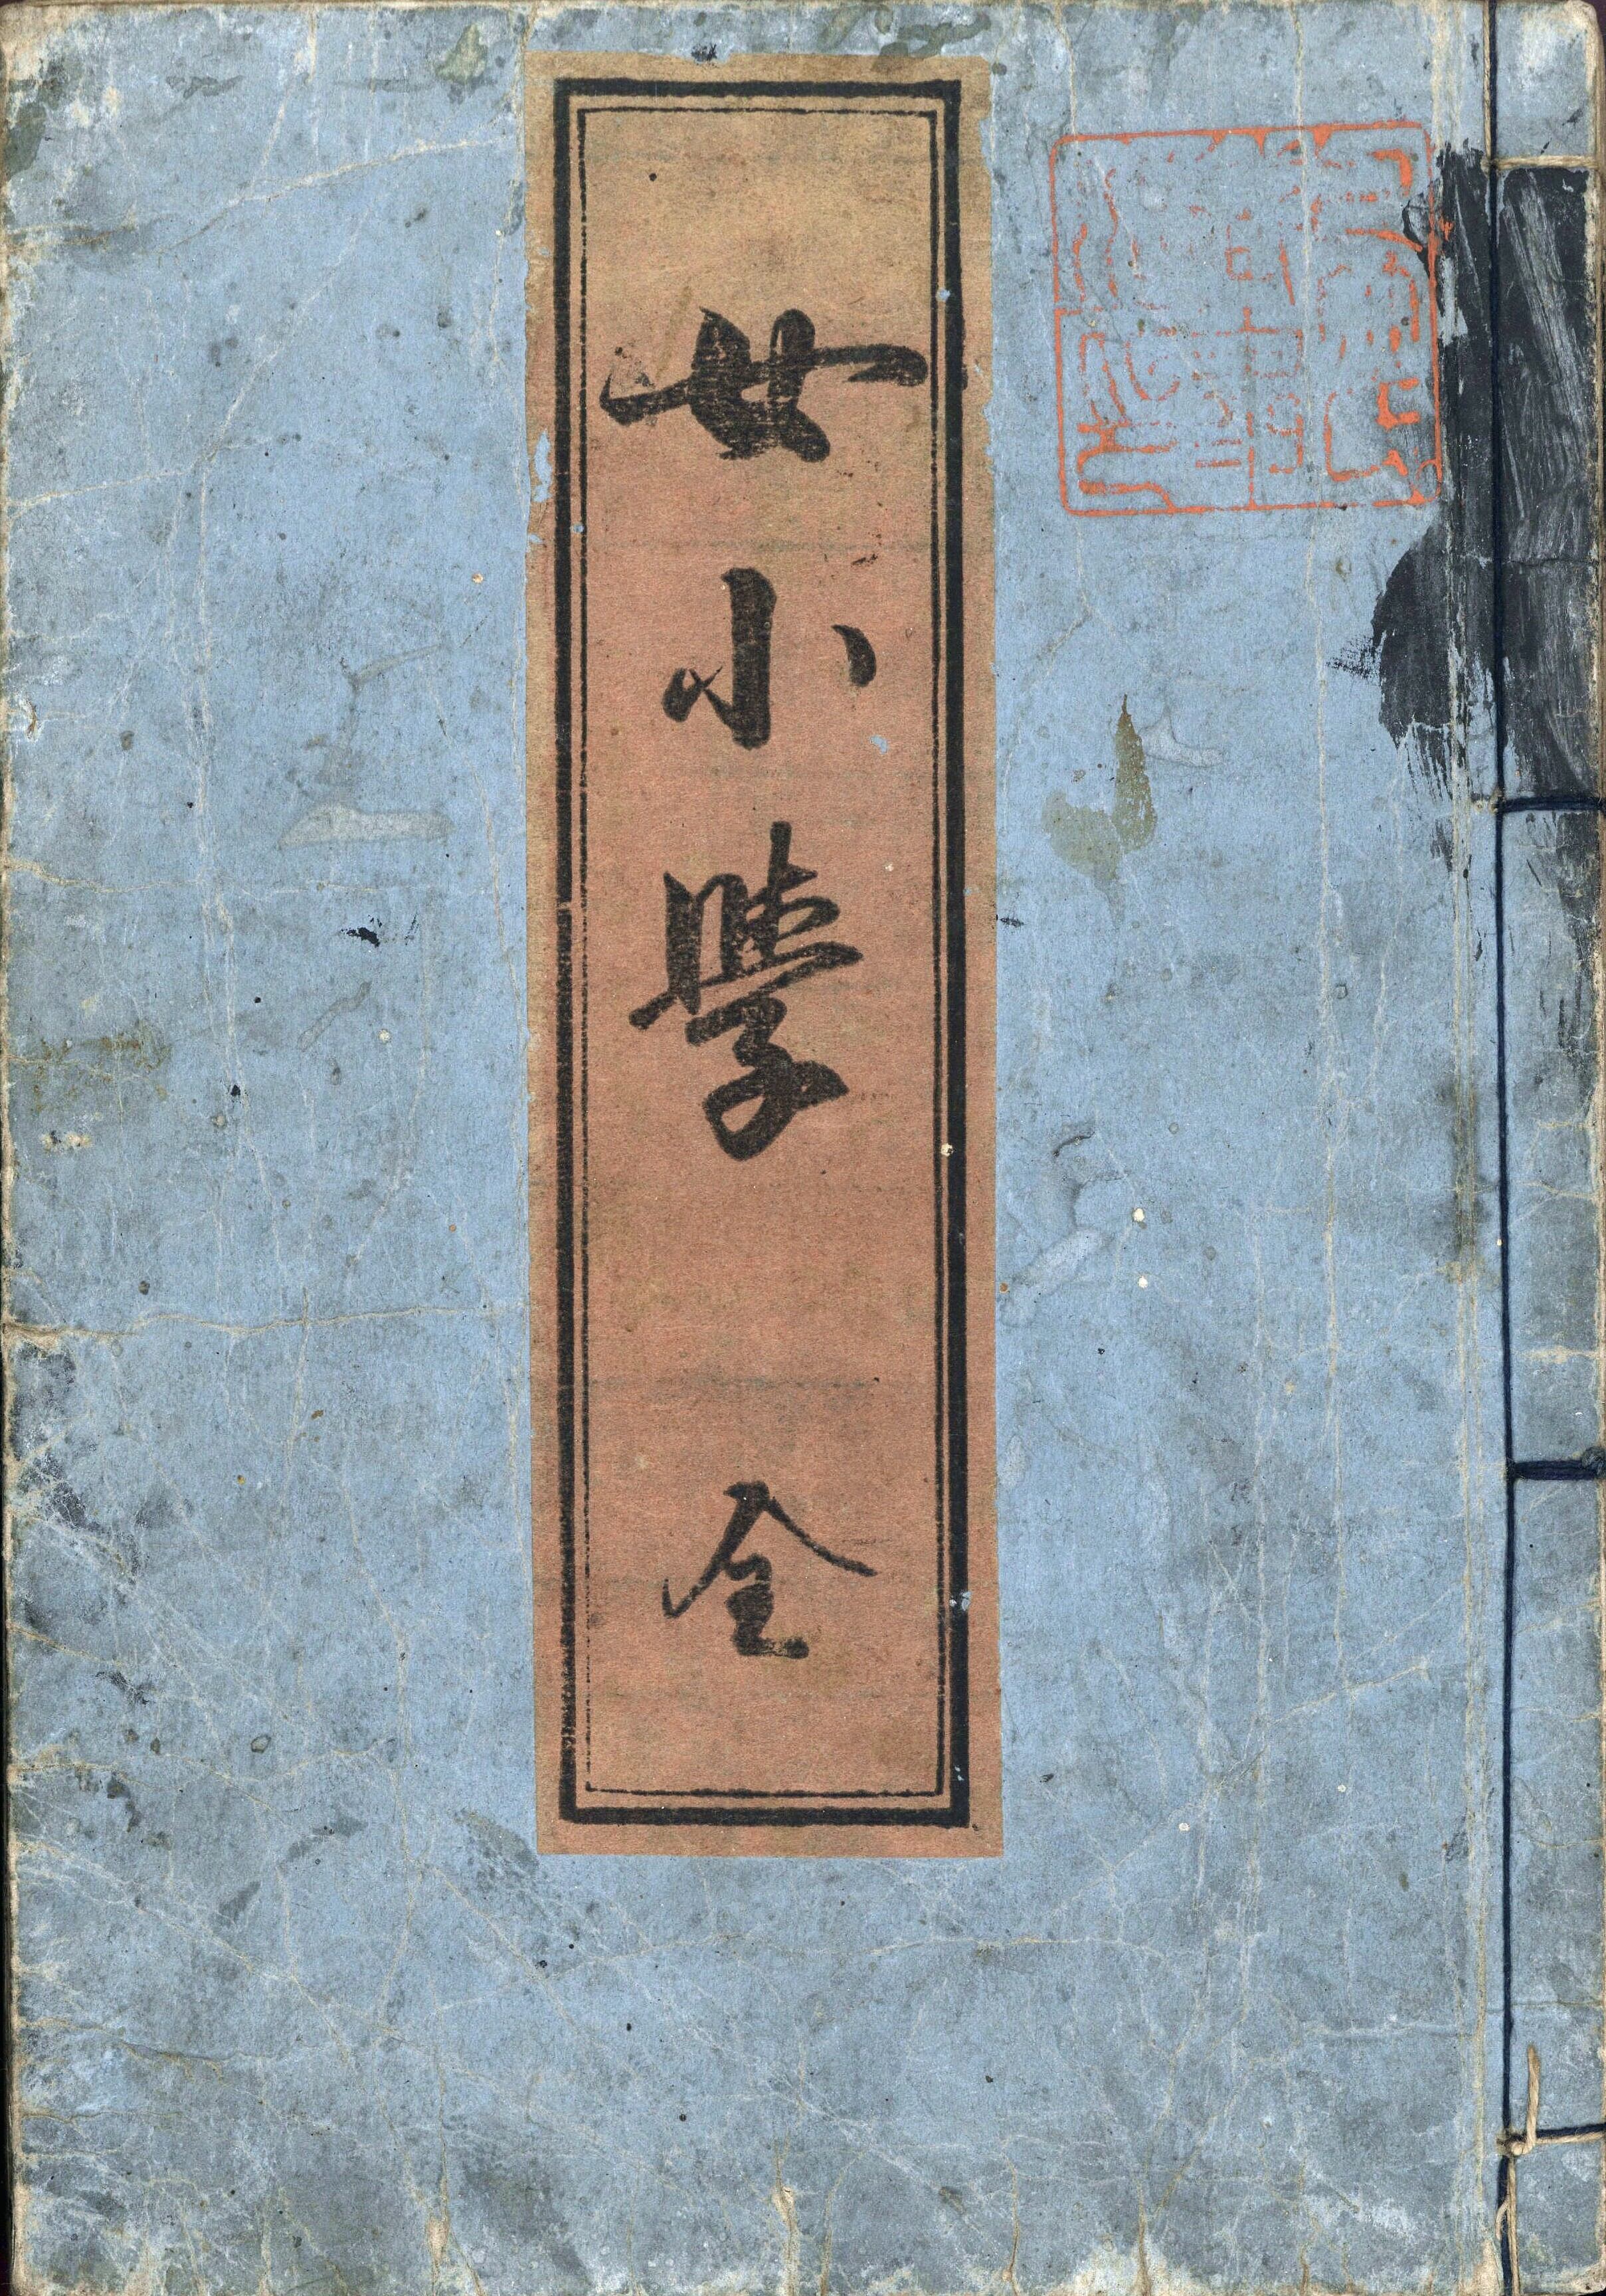 女小學 全